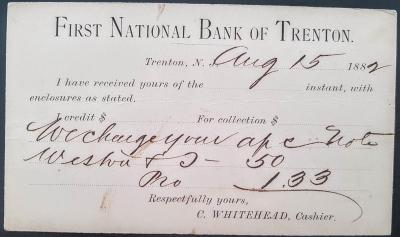 FIRST NATIONAL BANK OF TRENTON.
Trenton, N. Aug 15 1882
I have received yours of the instant, with
enclosures as stated.
I credit $ For collection $
We charge your a/c Note
Weston & 50
Pro 1.33
Respectfully yours,
C. WHITEHEAD, Cashier.